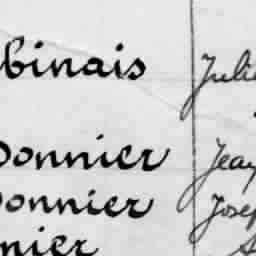 binais Juli
onnier Jean
onnier Josep
nier